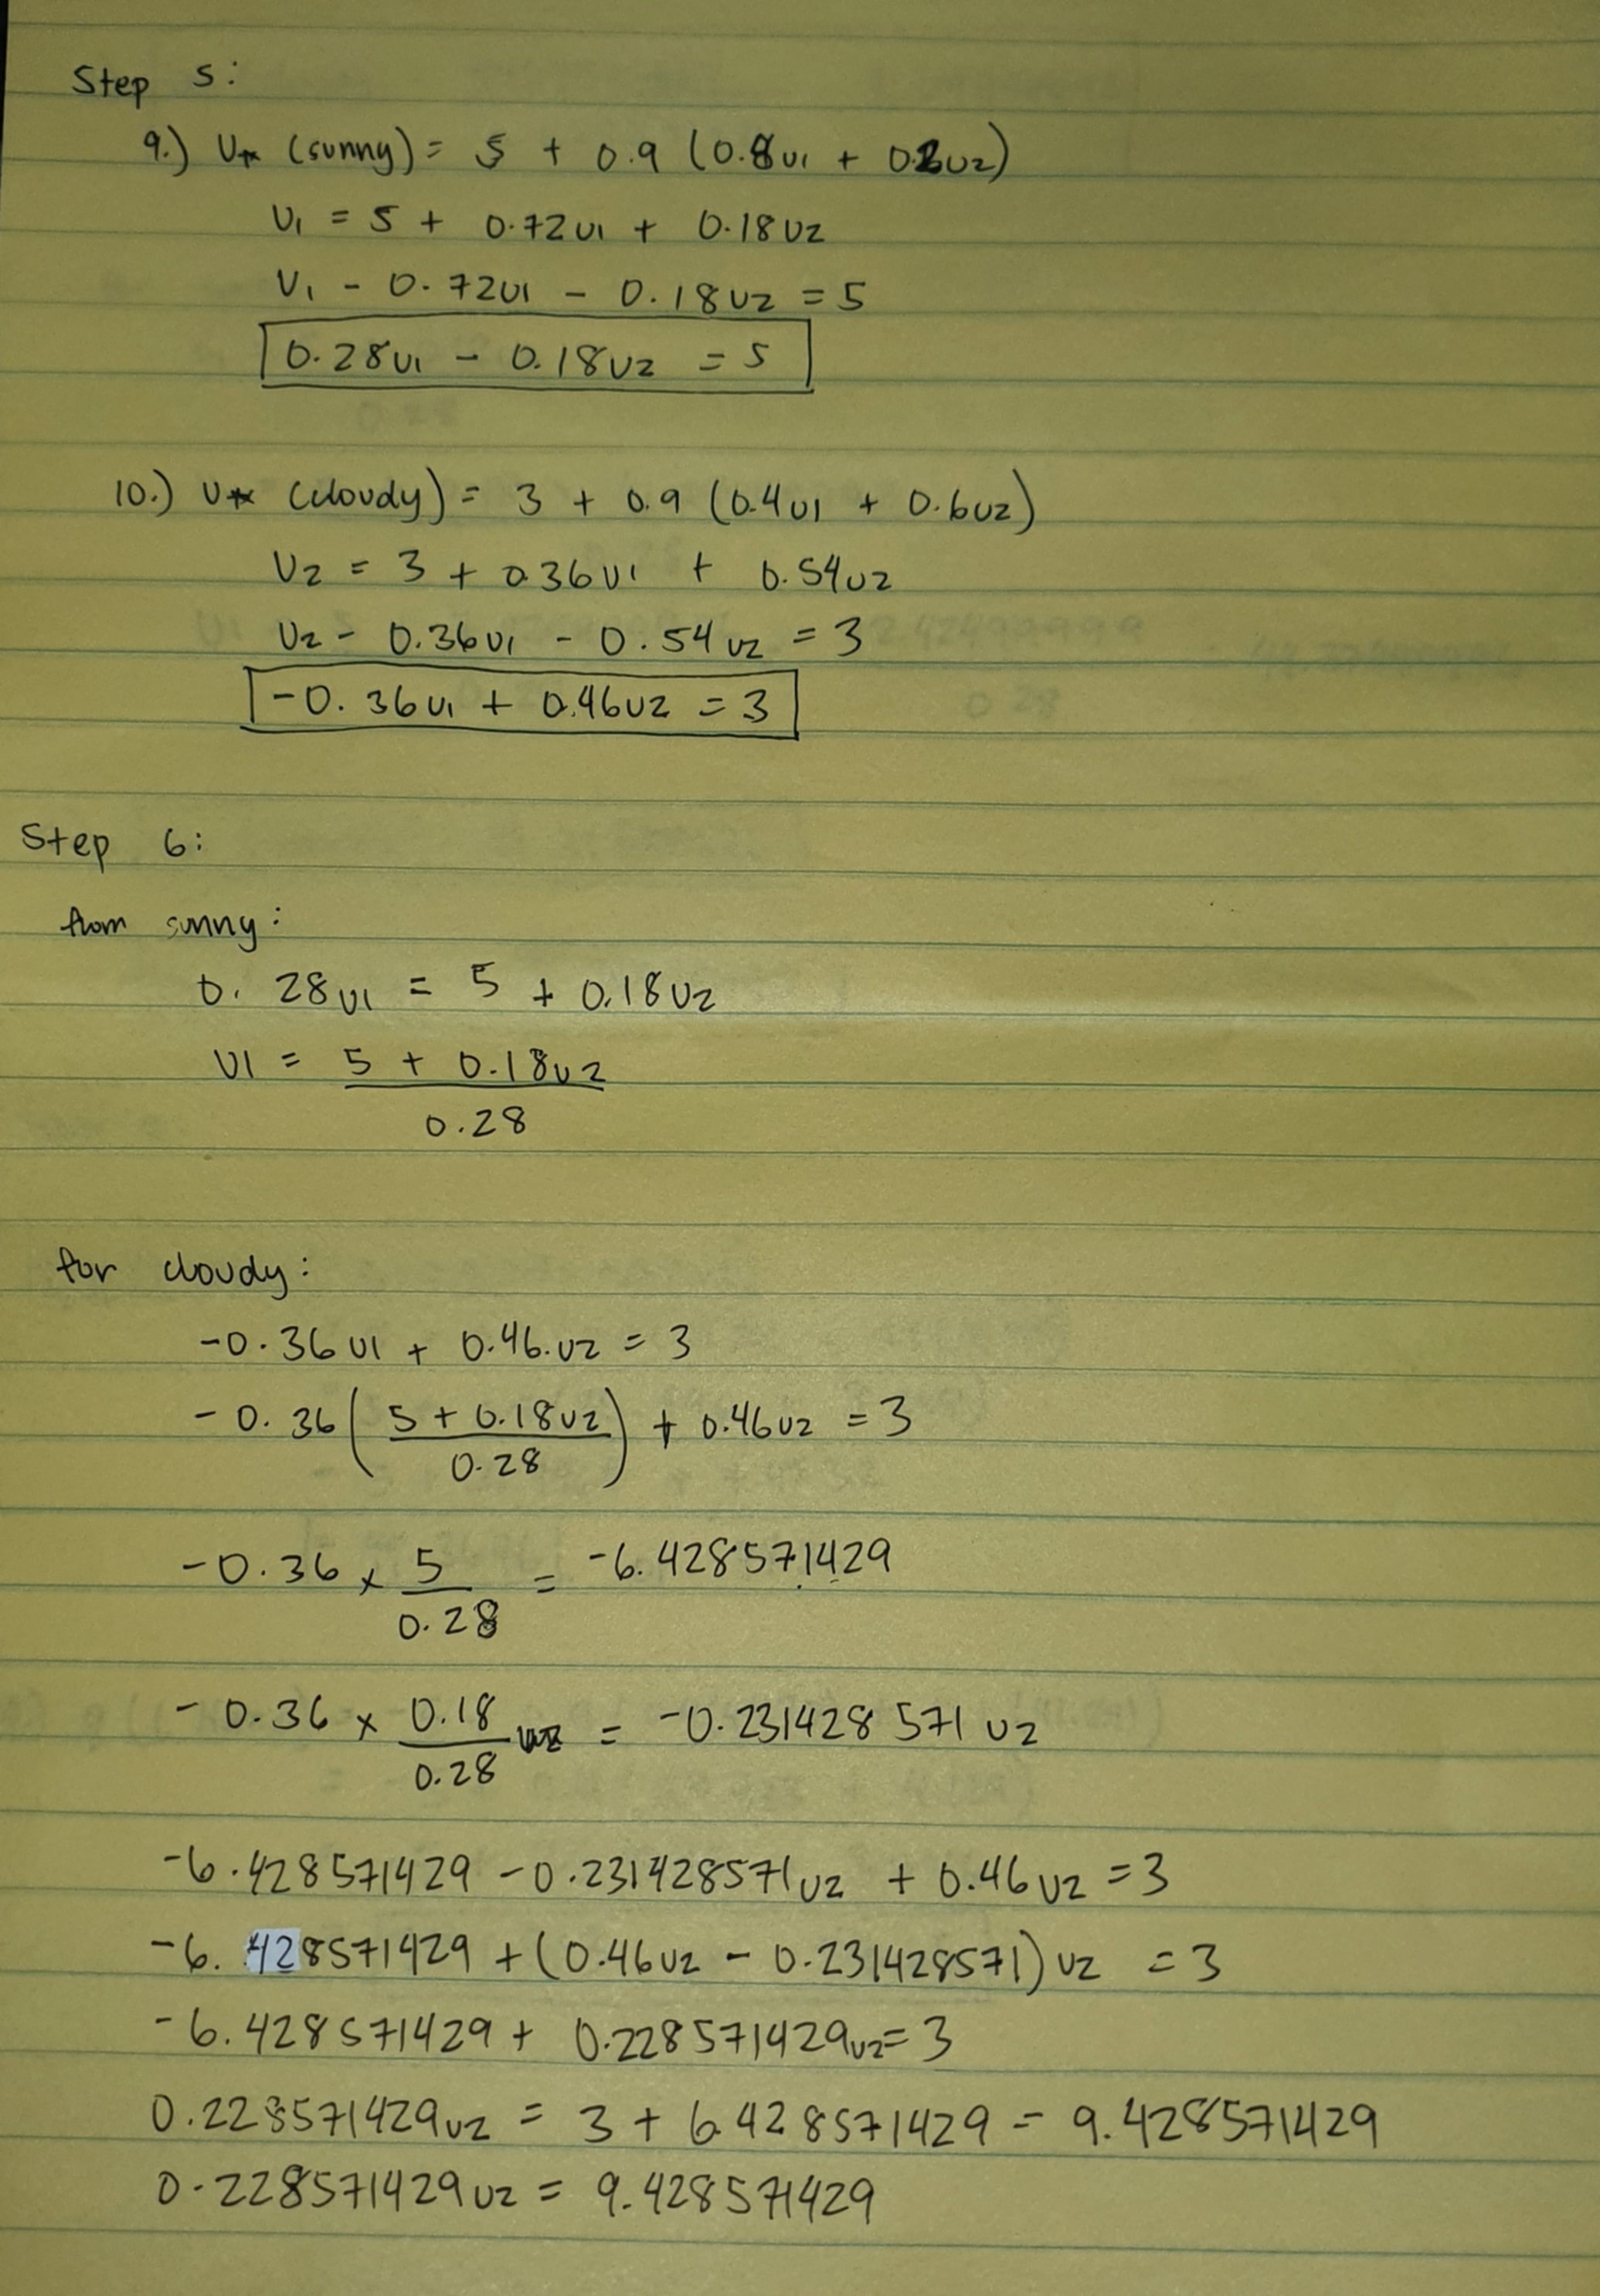 Step 5:
9.) U* (sunny) = 5 + 0.9 (0.8U1 + 0.2U2)
U1 = 5 + 0.72U1 + 0.18U2
U1 - 0.72U1 - 0.18U2 = 5
0.28U1 - 0.18U2 = 5
10.) U* (cloudy) = 3 + 0.9 (0.4U1 + 0.6U2)
U2 = 3 + 0.36U1 + 0.54U2
U2 - 0.36U1 - 0.54U2 = 3
-0.36U1 + 0.46U2 = 3
Step 6:
from sunny:
0.28U1 = 5 + 0.18U2
U1 = 5 + 0.18U2
0.28
for cloudy:
-0.36U1 + 0.46.U2 = 3
-0.36 (5 + 0.18U2 / 0.28) + 0.46U2 = 3
-0.36 x 5 / 0.28 = -6.428571429
-0.36 x 0.18 / 0.28 U2 = -0.231428571U2
-6.428571429 - 0.231428571U2 + 0.46U2 = 3
-6.428571429 + (0.46U2 - 0.231428571)U2 = 3
-6.428571429 + 0.228571429U2 = 3
0.228571429U2 = 3 + 6.428571429 = 9.428571429
0.228571429U2 = 9.428571429